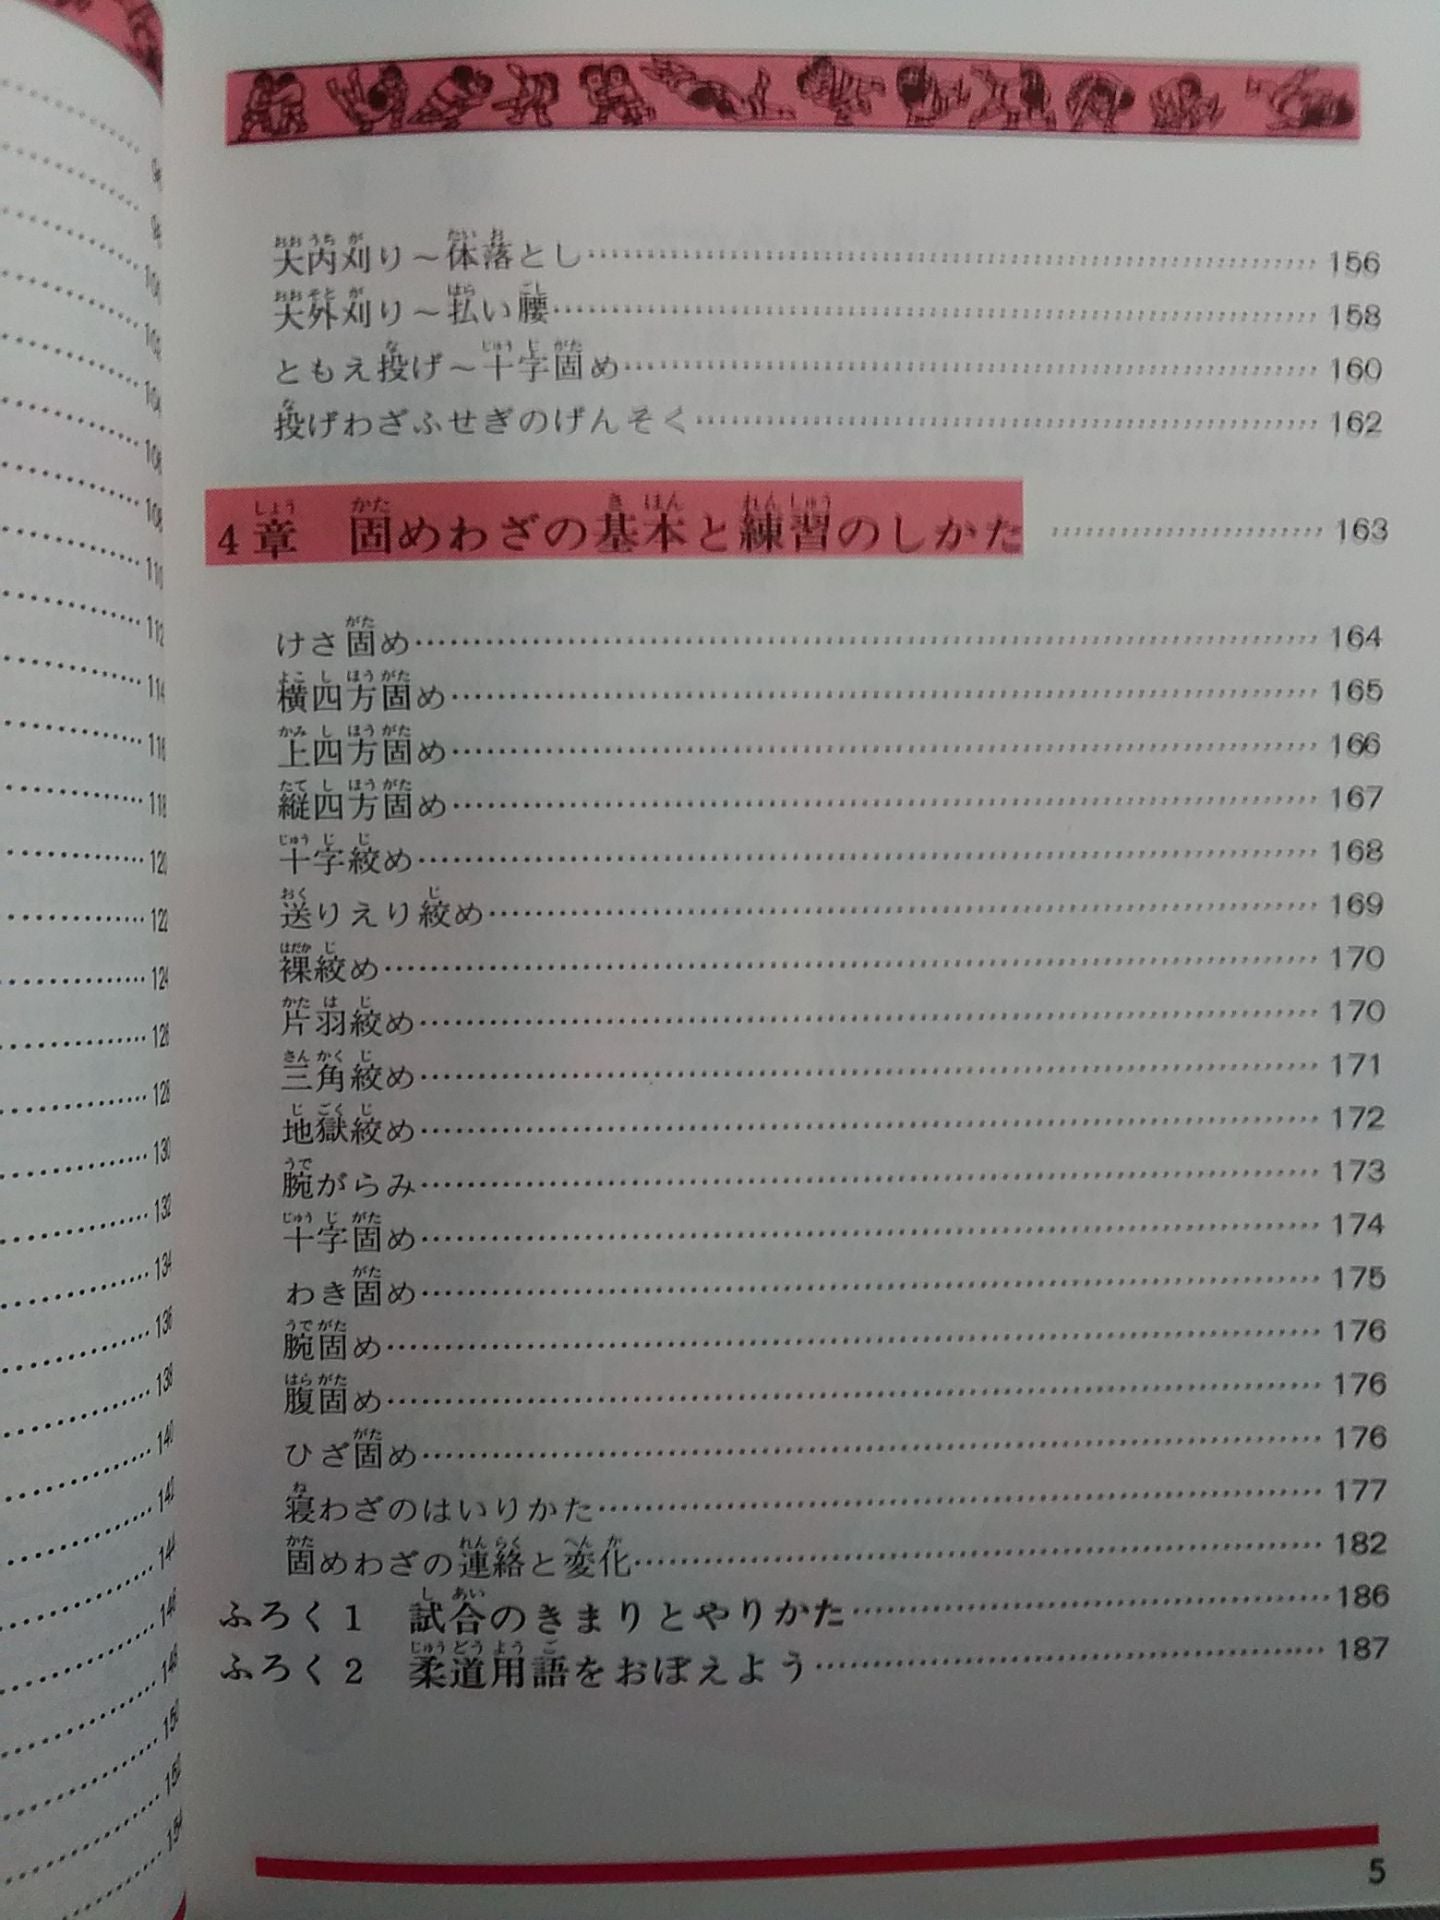 大内刈り～体落とし……156
大外刈り～払い腰……158
ともえ投げ～十字固め……160
投げわざふせぎのげんそく……162
4章 固めわざの基本と練習のしかた……163
けさ固め……164
横四方固め……165
上四方固め……166
縦四方固め……167
十字絞め……168
送りえり絞め……169
裸絞め……170
片羽絞め……170
三角絞め……171
地獄絞め……172
腕がらみ……173
十字固め……174
わき固め……175
腕固め……176
腹固め……176
ひざ固め……176
寝わざのはいりかた……177
固めわざの連絡と変化……182
ふろく1 試合のきまりとやりかた……186
ふろく2 柔道用語をおぼえよう……187
5
110
112
114
116
118
120
122
124
126
128
130
132
134
136
138
140
142
144
146
148
150
152
154